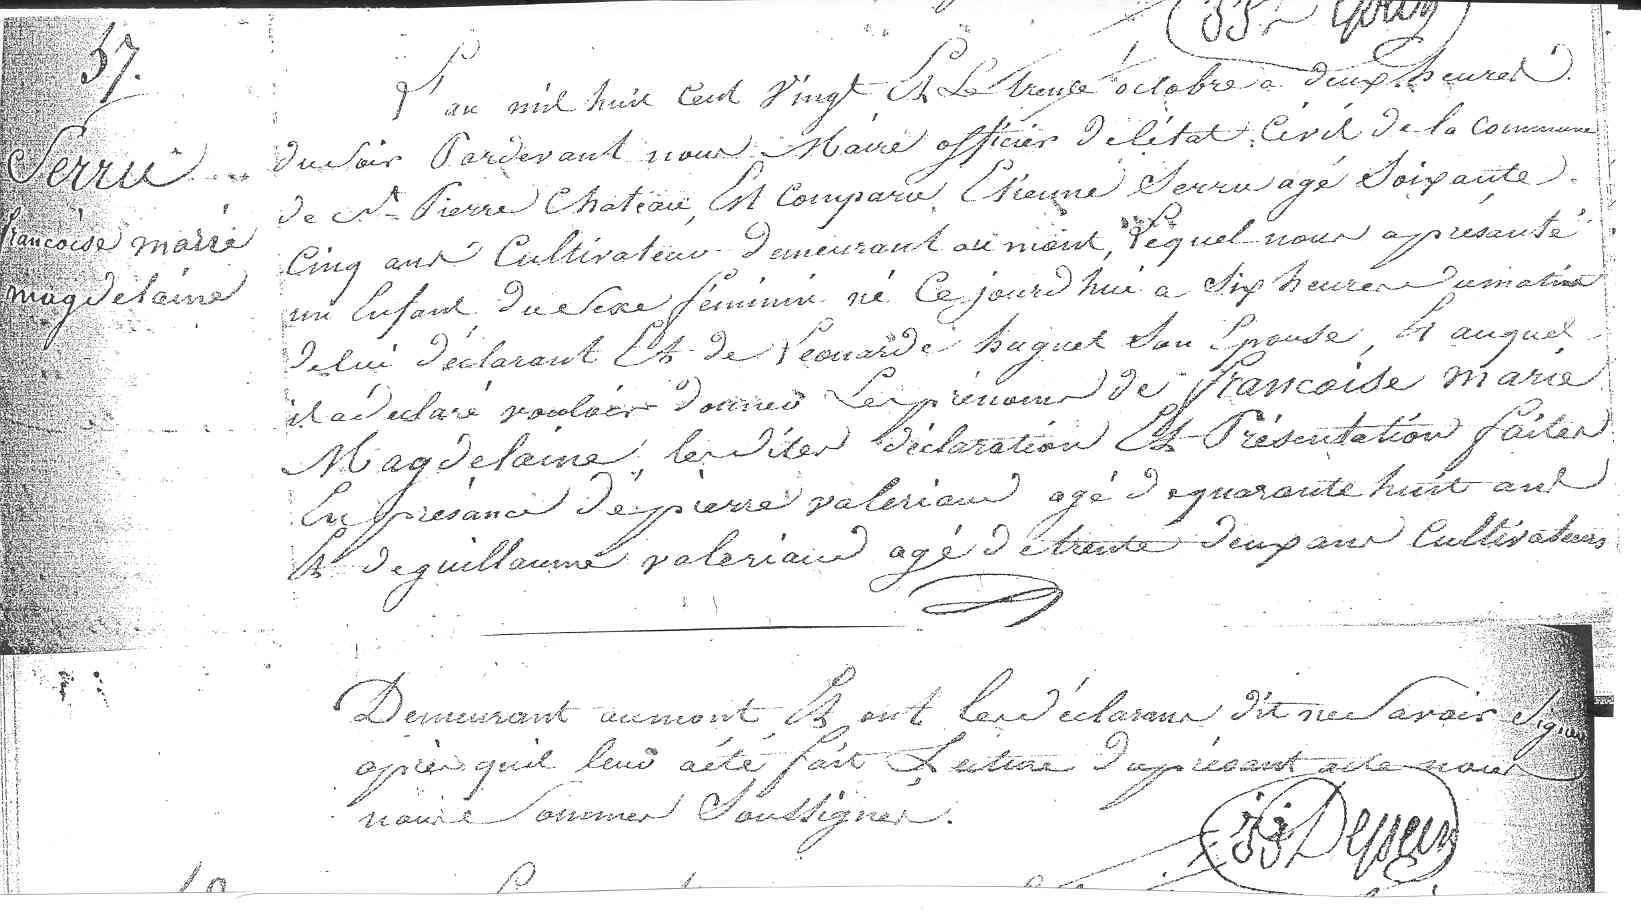 57.
Serru
francoise marie
magdelaine
L'an mil huit cent vingt Et Le trente octobre a deux heures
du soir Pardevant nous Maire officier de létat Civil de la commune
de St Pierre Chateau, Est comparu Etienne Serru agé Soixante
Cinq ans Cultivateur demeurant au mont, Lequel nous a présanté
un Enfant du Sexe féminin né Ce jourdhui a Six heures du matin
de lui déclarant Et de Léonarde huguet Son Epouse, Et auquel
il a déclaré vouloir donner Les prénoms de francoise marie
Magdelaine, les dites déclaration Et Présentation faites
En présance de pierre valeriaud agé de quarante huit ans
Et de guillaume valeriaud agé de trente deux ans Cultivateurs
Demeurant au mont, Et ont les déclarans dit ne Savoir Signer
après quil leur a été fait Lecture du présant acte nous
maire Sommes Soussignés.